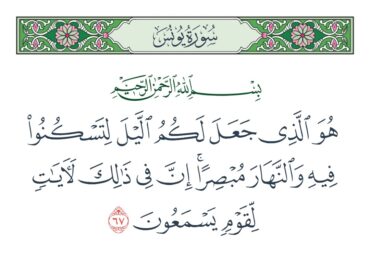 سُورَةُ يُونُسَ
بِسْمِ اللَّهِ الرَّحْمَٰنِ الرَّحِيمِ
هُوَ ٱلَّذِى جَعَلَ لَكُمُ ٱلَّيْلَ لِتَسْكُنُوا۟
فِيهِ وَٱلنَّهَارَ مُبْصِرًا ۚ إِنَّ فِى ذَٰلِكَ لَـَٔايَـٰتٍ
لِّقَوْمٍ يَسْمَعُونَ ٦٧